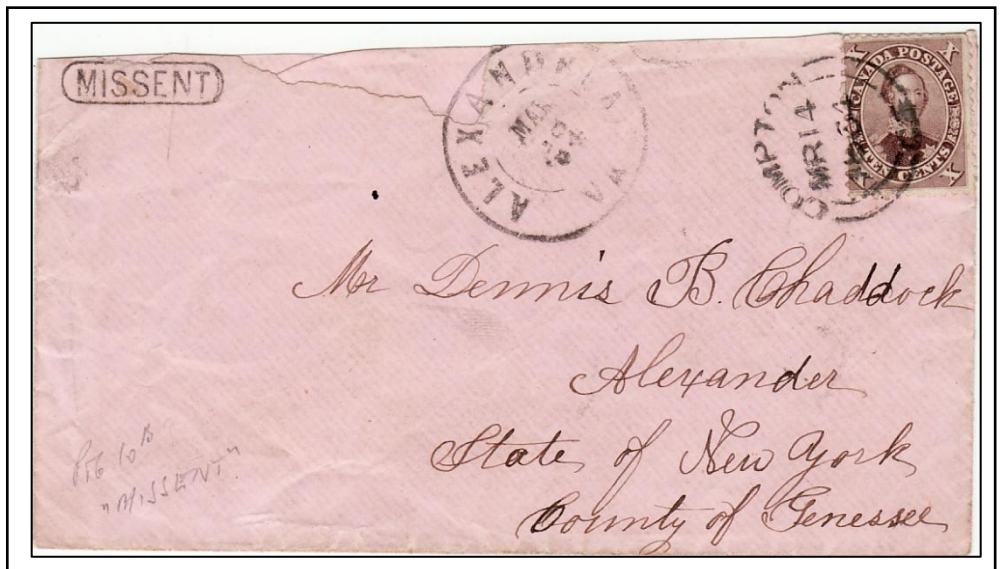 MISSENT
ALEXANDRIA VA
MAR
COMPTON
MR 14
64
X CANADA POSTAGE X
X TEN CENTS X
Mr Dennis B. Chaddock
Alexander
State of New York
County of Genessee
"MISSENT"